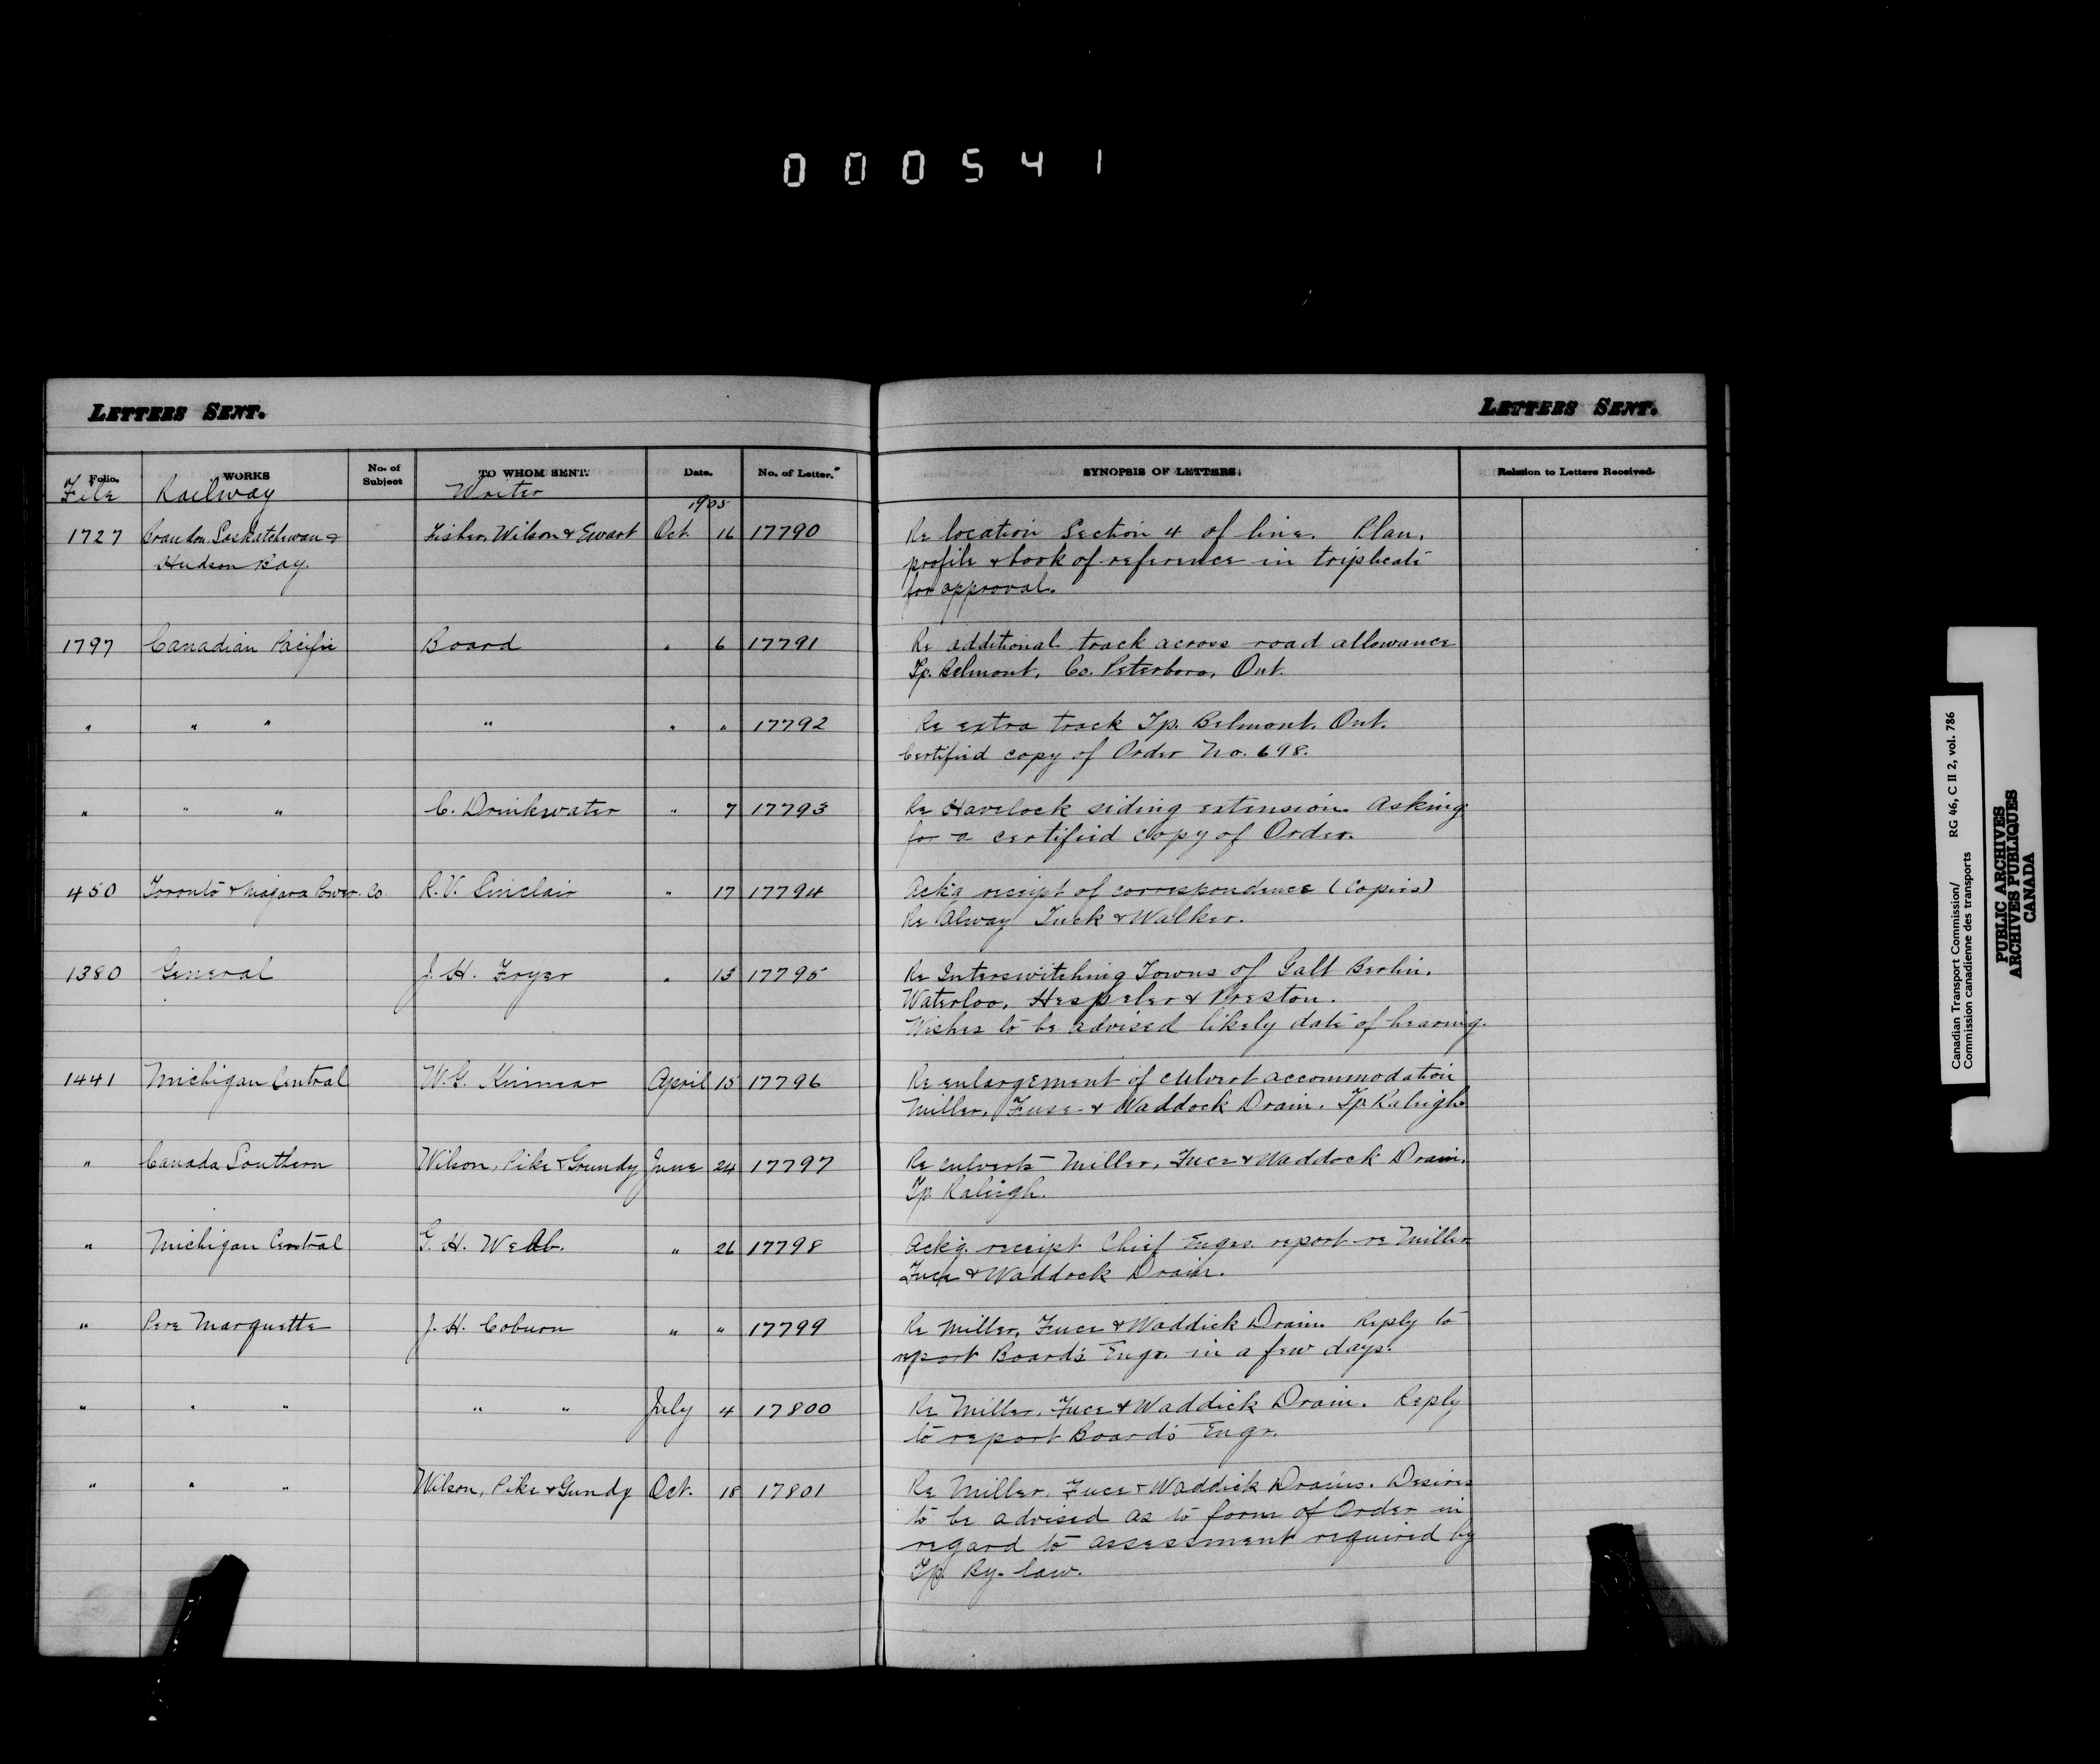 000541
LETTERS SENT.
LETTERS SENT.
Folio. WORKS No. of Subject TO WHOM SENT. Date. No. of Letter. SYNOPSIS OF LETTERS. Relation to Letters Received.
File Railway Writer
1905
1727 Brandon Saskatchewan & Fisher, Wilson & Ewart Oct. 16 17790 Re location Section 4 of line. Plan,
Hudson Bay. profile & book of reference in triplicate
for approval.
1797 Canadian Pacific Board " 6 17791 Re additional track across road allowance
Tp. Belmont, Co. Peterboro, Ont.
" " " " " " 17792 Re extra track Tp. Belmont. Ont.
Certified copy of Order No. 698.
" " " C. Drinkwater " 7 17793 Re Havelock siding extension. Asking
for a certified copy of Order.
450 Toronto & Niagara Power Co. R. V. Sinclair " 17 17794 Ackg receipt of correspondence (copies)
Re Alway Tuck & Walker.
1380 General J. H. Fryer " 13 17795 Re Interswitching Towns of Galt Berlin,
Waterloo, Hespeler & Preston.
Wishes to be advised likely date of hearing.
1441 Michigan Central W. G. April 15 17796 Re enlargement of culvert accommodation
Miller, Fuse & Waddock Drain. Tp. Raleigh
" Canada Southern Wilson, Pike & Gundy June 24 17797 Re culverts Miller, Fuce & Waddock Drain,
Tp. Raleigh.
" Michigan Central G. H. Webb. " 26 17798 Ackg. receipt Chief Engrs. report re Miller
Fuce & Waddock Drain.
" Pere Marquette J. H. Coburn " " 17799 Re Miller, Fuce & Waddick Drain. Reply to
report Board's Engr. in a few days.
" " " " " July 4 17800 Re Miller, Fuce & Waddick Drain. Reply
to report Board's Engr.
" " " Wilson, Pike & Gundy Oct. 18 17801 Re Miller, Fuce & Waddick Drains. Desires
to be advised as to form of Order in
regard to assessment required by
Tp. By-law.
Canadian Transport Commission/ RG 46, C II 2, vol. 786
Commission canadienne des transports
PUBLIC ARCHIVES
ARCHIVES PUBLIQUES
CANADA